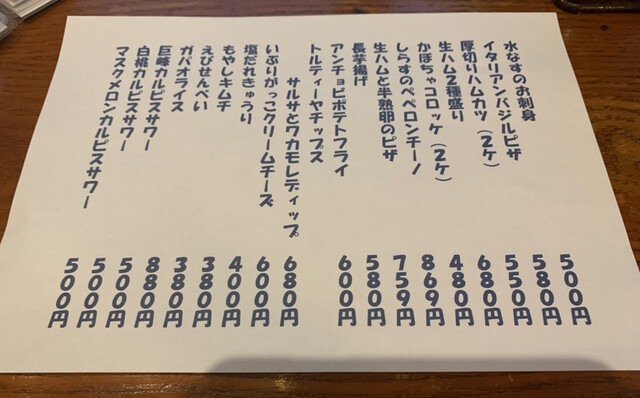 水なすのお刺身 500円
イタリアンバジルピザ 580円
厚切りハムカツ（2ケ） 550円
生ハム2種盛り 680円
かぼちゃコロッケ（2ケ） 480円
しらすのペペロンチーノ 869円
生ハムと半熟卵のピザ 759円
長芋揚げ 580円
アンチョビポテトフライ 600円
トルティーヤチップス
サルサとワカモレディップ 680円
いぶりがっこクリームチーズ 600円
塩だれきゅうり 400円
もやしキムチ 380円
えびせんべい 380円
ガパオライス 880円
巨峰カルピスサワー 500円
白桃カルピスサワー 500円
マスクメロンカルピスサワー 500円